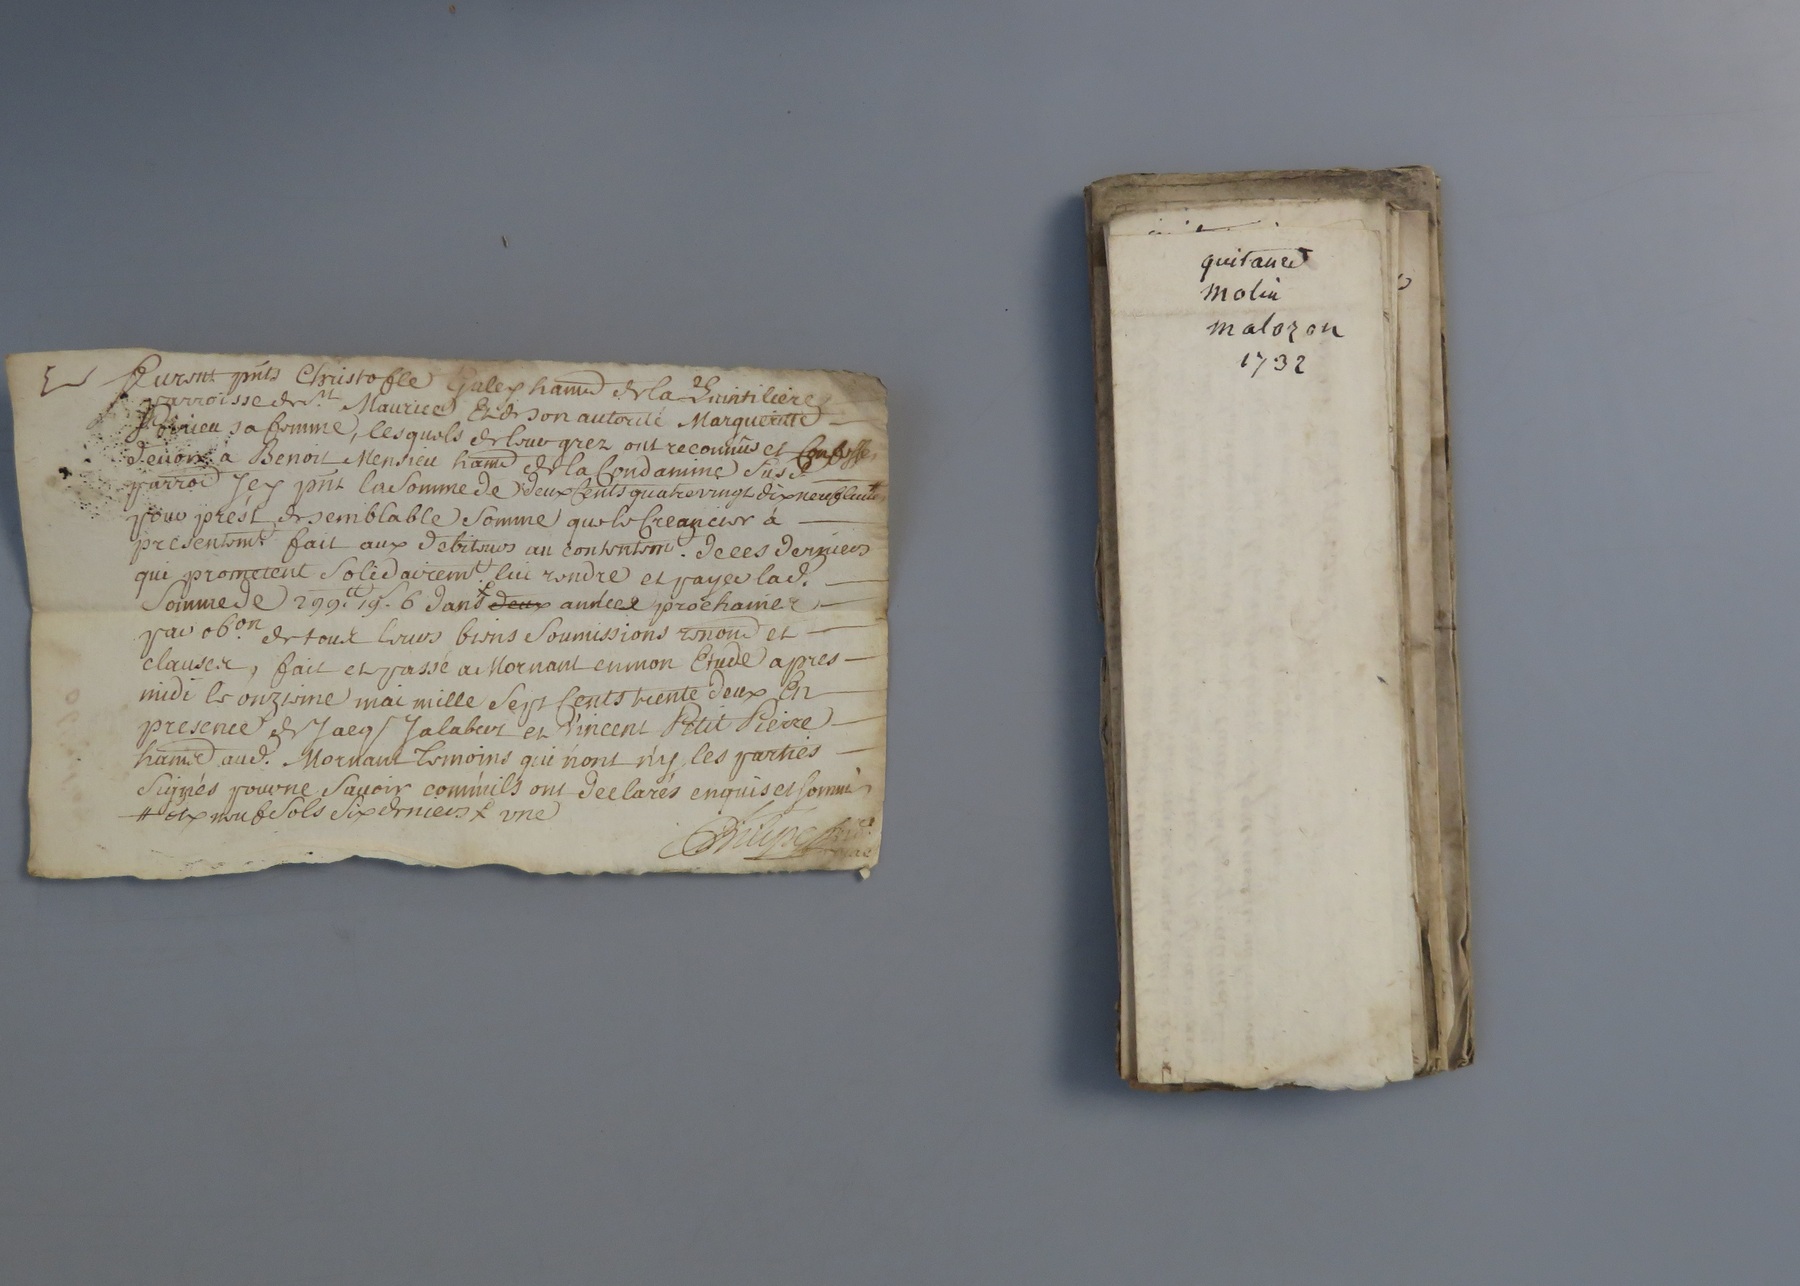 furent pnts Christofle Guley hant de la Quintiliere
parroisse de St Maurice Et de son autorité Margueritte
sa femme, lesquels de leur grez ont reconnus et Confesse
devoir à Benoit Mensieu hant de la Condamine susd
parroi Jcy pnt la somme de deux Cents quatre vingt dix neuf livres
pour prest de semblable somme que le Creancier à
presentemt fait aux debiteurs au contentemt. de ces derniers
qui prometent solidairemt. lui rendre et payer lad.
somme de 299.tt 19.s 6 dans deux années prochaines
par obon de tous leurs biens soumissions renond et
clauses, fait et passé a Mornant en mon Etude apres
midi le onzieme mai mille sept Cents trente deux En
presence de Jacq Jalabert et Vincent Petit Pierre
hants aud. Mornant temoins qui n'ont n'y les parties
signés pour ne savoir comm'ils ont declarés enquis et sommés
# dix neuf sols six deniers x une
Philipe
quitance
molin
malozon
1732